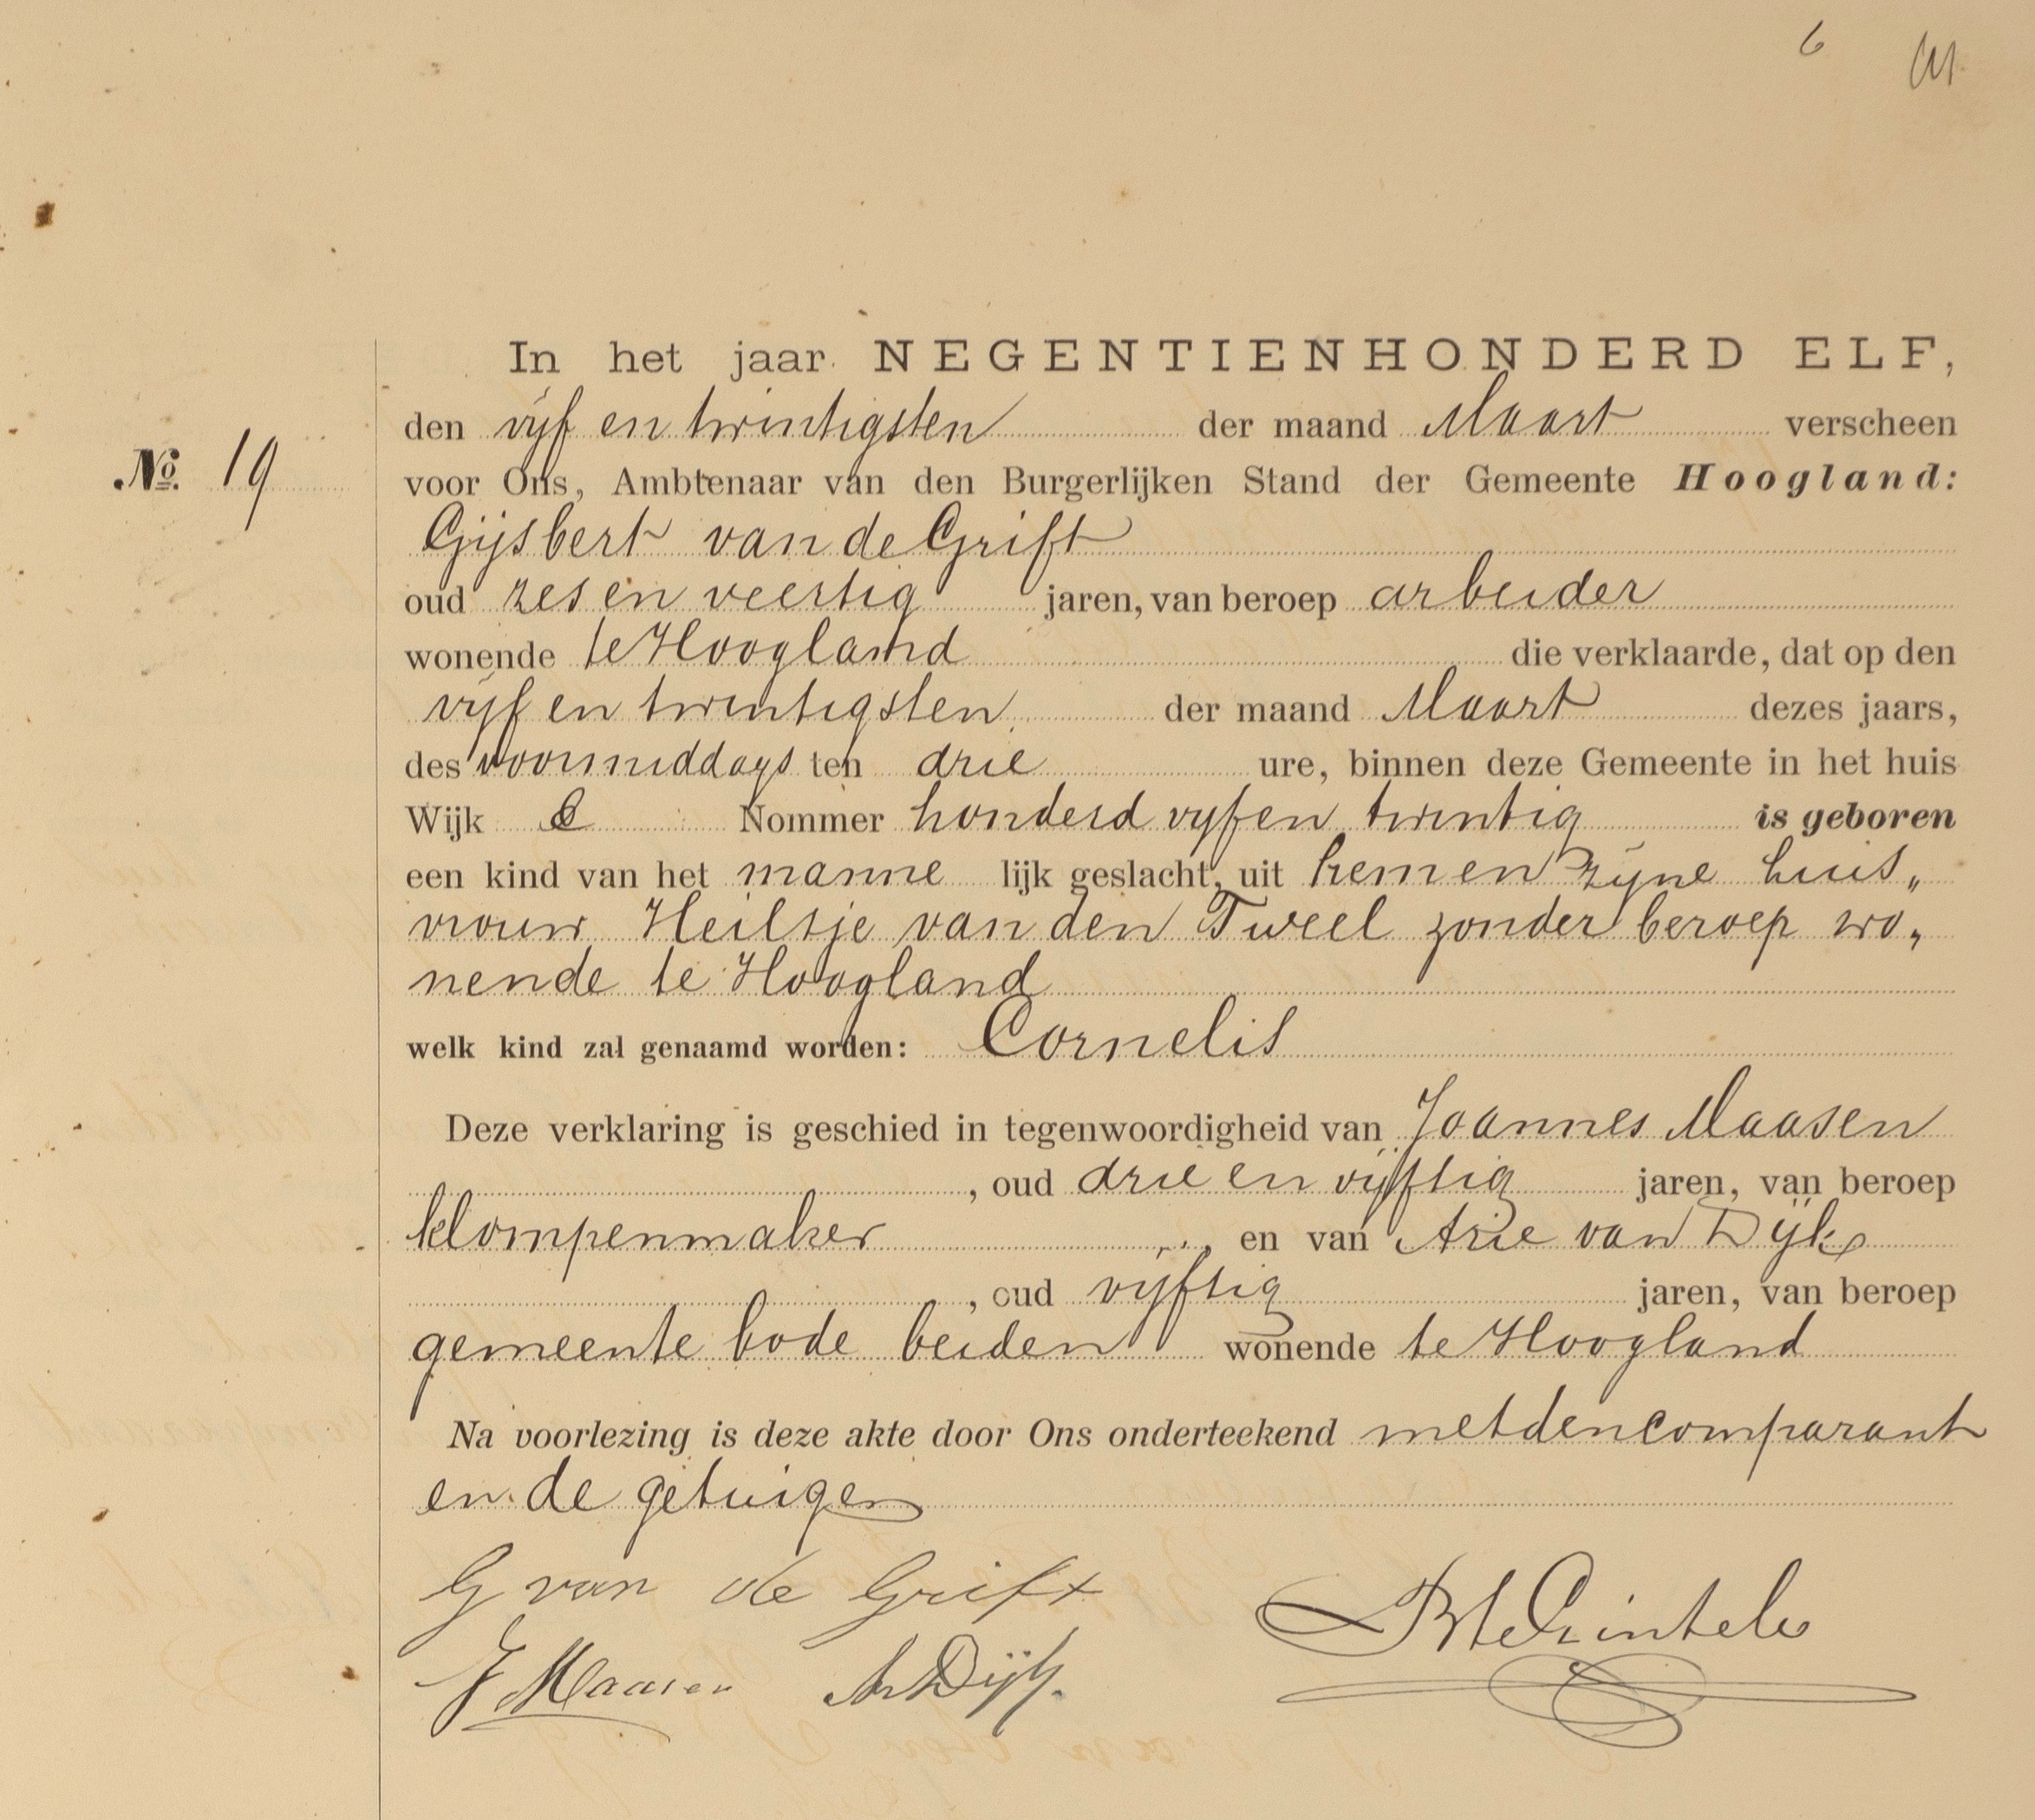 6
In het jaar NEGENTIENHONDERD ELF,
den vijf en twintigsten der maand Maart verscheen
No. 19
voor Ons, Ambtenaar van den Burgerlijken Stand der Gemeente Hoogland:
Gijsbert van de Grift
oud zes en veertig jaren, van beroep arbeider
wonende te Hoogland die verklaarde, dat op den
vijf en twintigsten der maand Maart dezes jaars,
des voormiddags ten drie ure, binnen deze Gemeente in het huis
Wijk Nommer honderd vijf en twintig is geboren
een kind van het manne lijk geslacht, uit hem en zijne huis„
vrouw Heiltje van den Tweel zonder beroep wo„
nende te Hoogland
welk kind zal genaamd worden: Cornelis
Deze verklaring is geschied in tegenwoordigheid van Joannes Maasen
, oud drie en vijftig jaren, van beroep
klompenmaker, en van Arie van Dijk
, oud vijftig jaren, van beroep
gemeente bode beiden wonende te Hoogland
Na voorlezing is deze akte door Ons onderteekend met den comparant
en de getuigen
G van de Grift
J Maasen AvDijk.